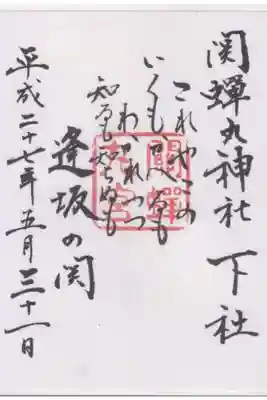 関蟬丸神社 下社
これやこの
いくもかへるも
わかれつつ
知るも知らぬも
逢坂の関
平成二十七年五月三十一日